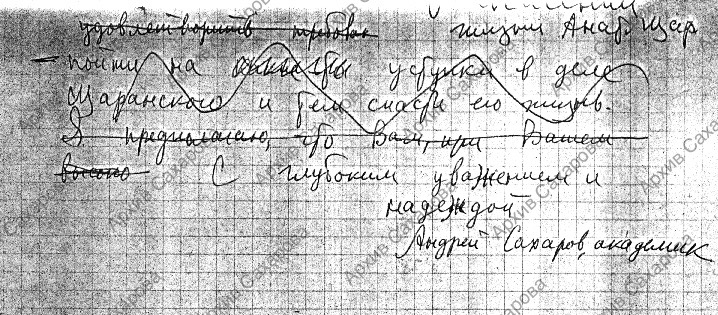 удовлетворить требован жизни Анат. Щар
– пойти на уступки в деле
Щаранского и тем спасти его жизнь.
Я предполагаю, что Вам, при Вашем
высоко С глубоким уважением и
надеждой
Андрей Сахаров, академик